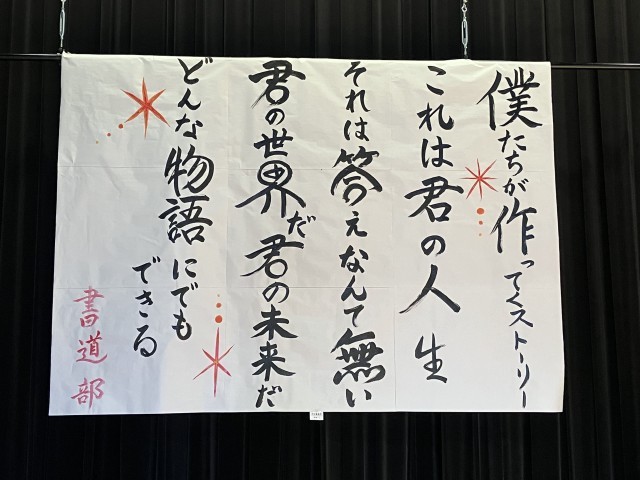 僕たちが作ってくストーリー
これは君の人生
それは答えなんて無い
君の世界だ君の未来だ
どんな物語にでも
できる
書道部